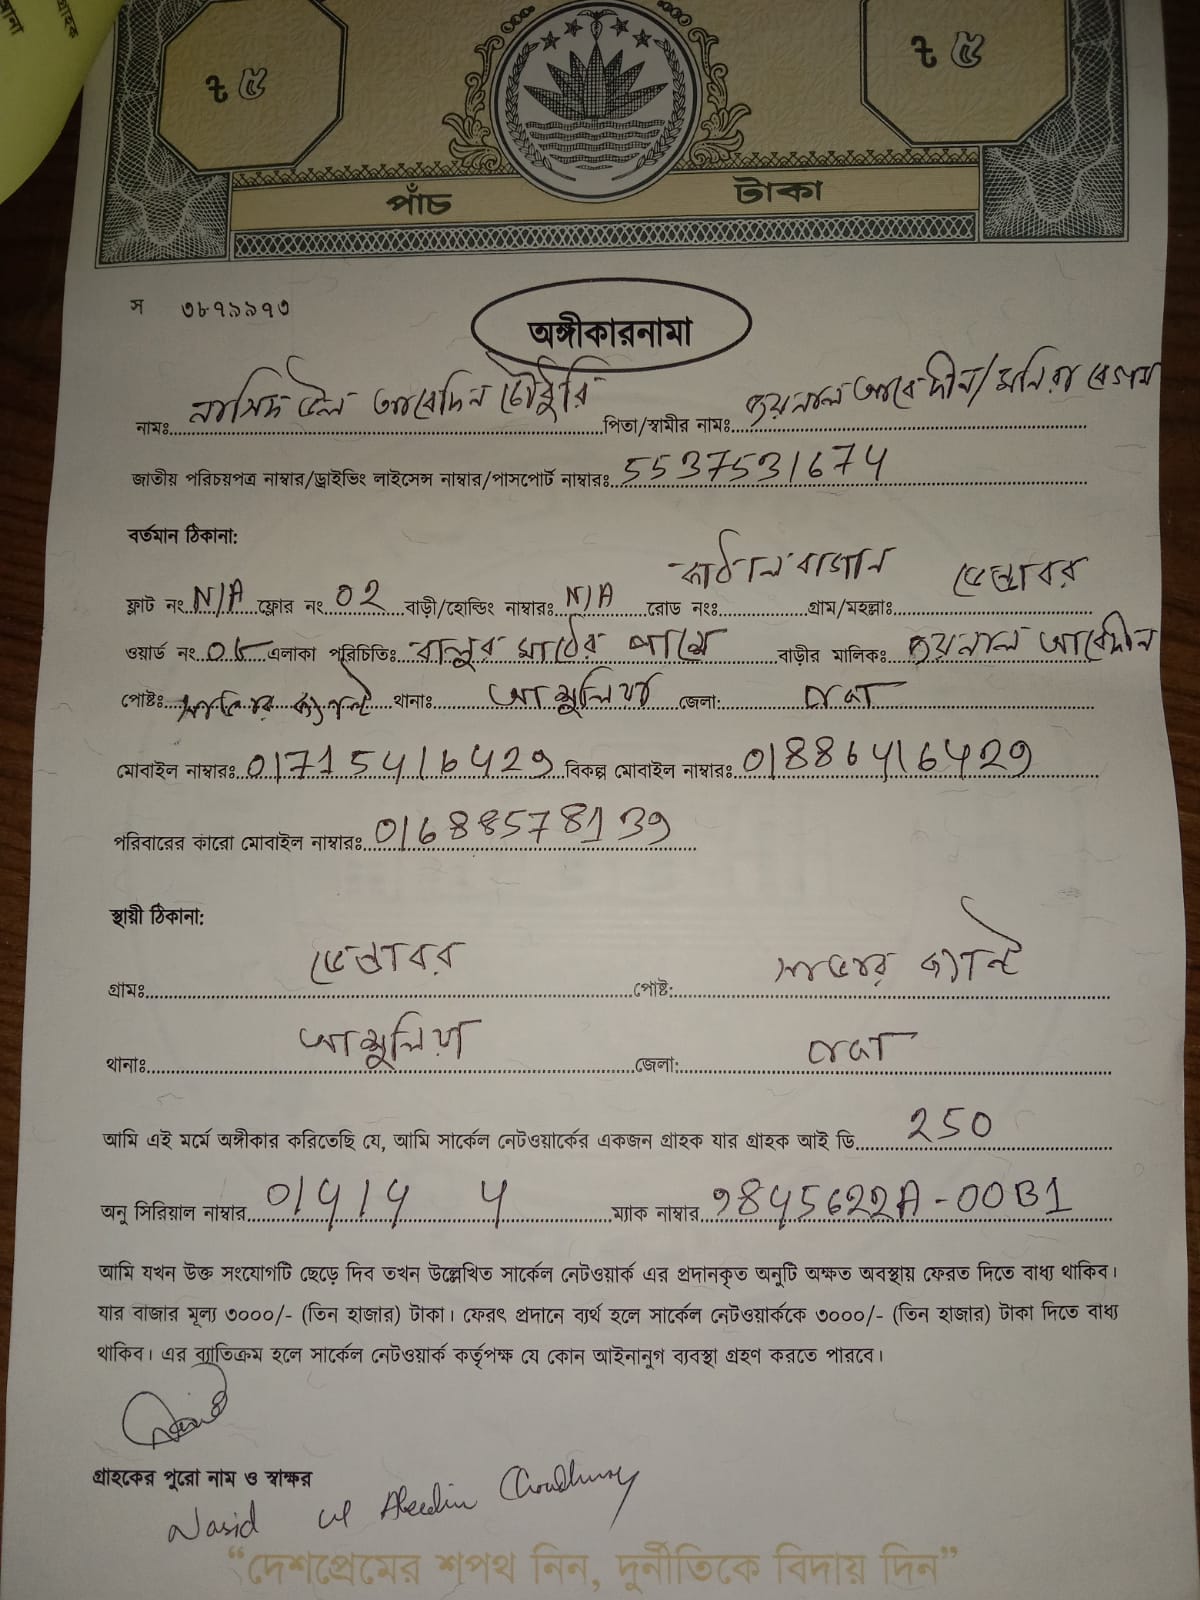 ৳ ৫
৳ ৫
পাঁচ টাকা
স ৩৮৭৯৯৭৩
অঙ্গীকারনামা
নামঃ নাসিদ উল আবেদিন চৌধুরি পিতা/স্বামীর নামঃ জয়নাল আবেদীন/মনিরা বেগম
জাতীয় পরিচয়পত্র নাম্বার/ড্রাইভিং লাইসেন্স নাম্বার/পাসপোর্ট নাম্বারঃ 5537531674
বর্তমান ঠিকানা:
ফ্লাট নং N/A ফ্লোর নং 02 বাড়ী/হোল্ডিং নাম্বারঃ N/A রোড নংঃ কাঠাল বাগান গ্রাম/মহল্লাঃ ভেন্ডাবর
ওয়ার্ড নং এলাকা পরিচিতিঃ বালুর মাঠের পাশে বাড়ীর মালিকঃ জয়নাল আবেদীন
পোষ্টঃ সাভার ক্যান্ট থানাঃ আশুলিয়া জেলা: ঢাকা
মোবাইল নাম্বারঃ 01715416429 বিকল্প মোবাইল নাম্বারঃ 01886416429
পরিবারের কারো মোবাইল নাম্বারঃ 01688578139
স্থায়ী ঠিকানা:
গ্রামঃ ভেন্ডাবর পোষ্ট: সাভার ক্যান্ট
থানাঃ আশুলিয়া জেলা: ঢাকা
আমি এই মর্মে অঙ্গীকার করিতেছি যে, আমি সার্কেল নেটওয়ার্কের একজন গ্রাহক যার গ্রাহক আই ডি 250
অনু সিরিয়াল নাম্বার 01414 4 ম্যাক নাম্বার 9845622A-00B1
আমি যখন উক্ত সংযোগটি ছেড়ে দিব তখন উল্লেখিত সার্কেল নেটওয়ার্ক এর প্রদানকৃত অনুটি অক্ষত অবস্থায় ফেরত দিতে বাধ্য থাকিব।
যার বাজার মূল্য ৩০০০/- (তিন হাজার) টাকা। ফেরৎ প্রদানে ব্যর্থ হলে সার্কেল নেটওয়ার্ককে ৩০০০/- (তিন হাজার) টাকা দিতে বাধ্য
থাকিব। এর ব্যাতিক্রম হলে সার্কেল নেটওয়ার্ক কর্তৃপক্ষ যে কোন আইনানুগ ব্যবস্থা গ্রহণ করতে পারবে।
গ্রাহকের পুরো নাম ও স্বাক্ষর
Nasid ul Abedin Chowdhury
“দেশপ্রেমের শপথ নিন, দুর্নীতিকে বিদায় দিন”